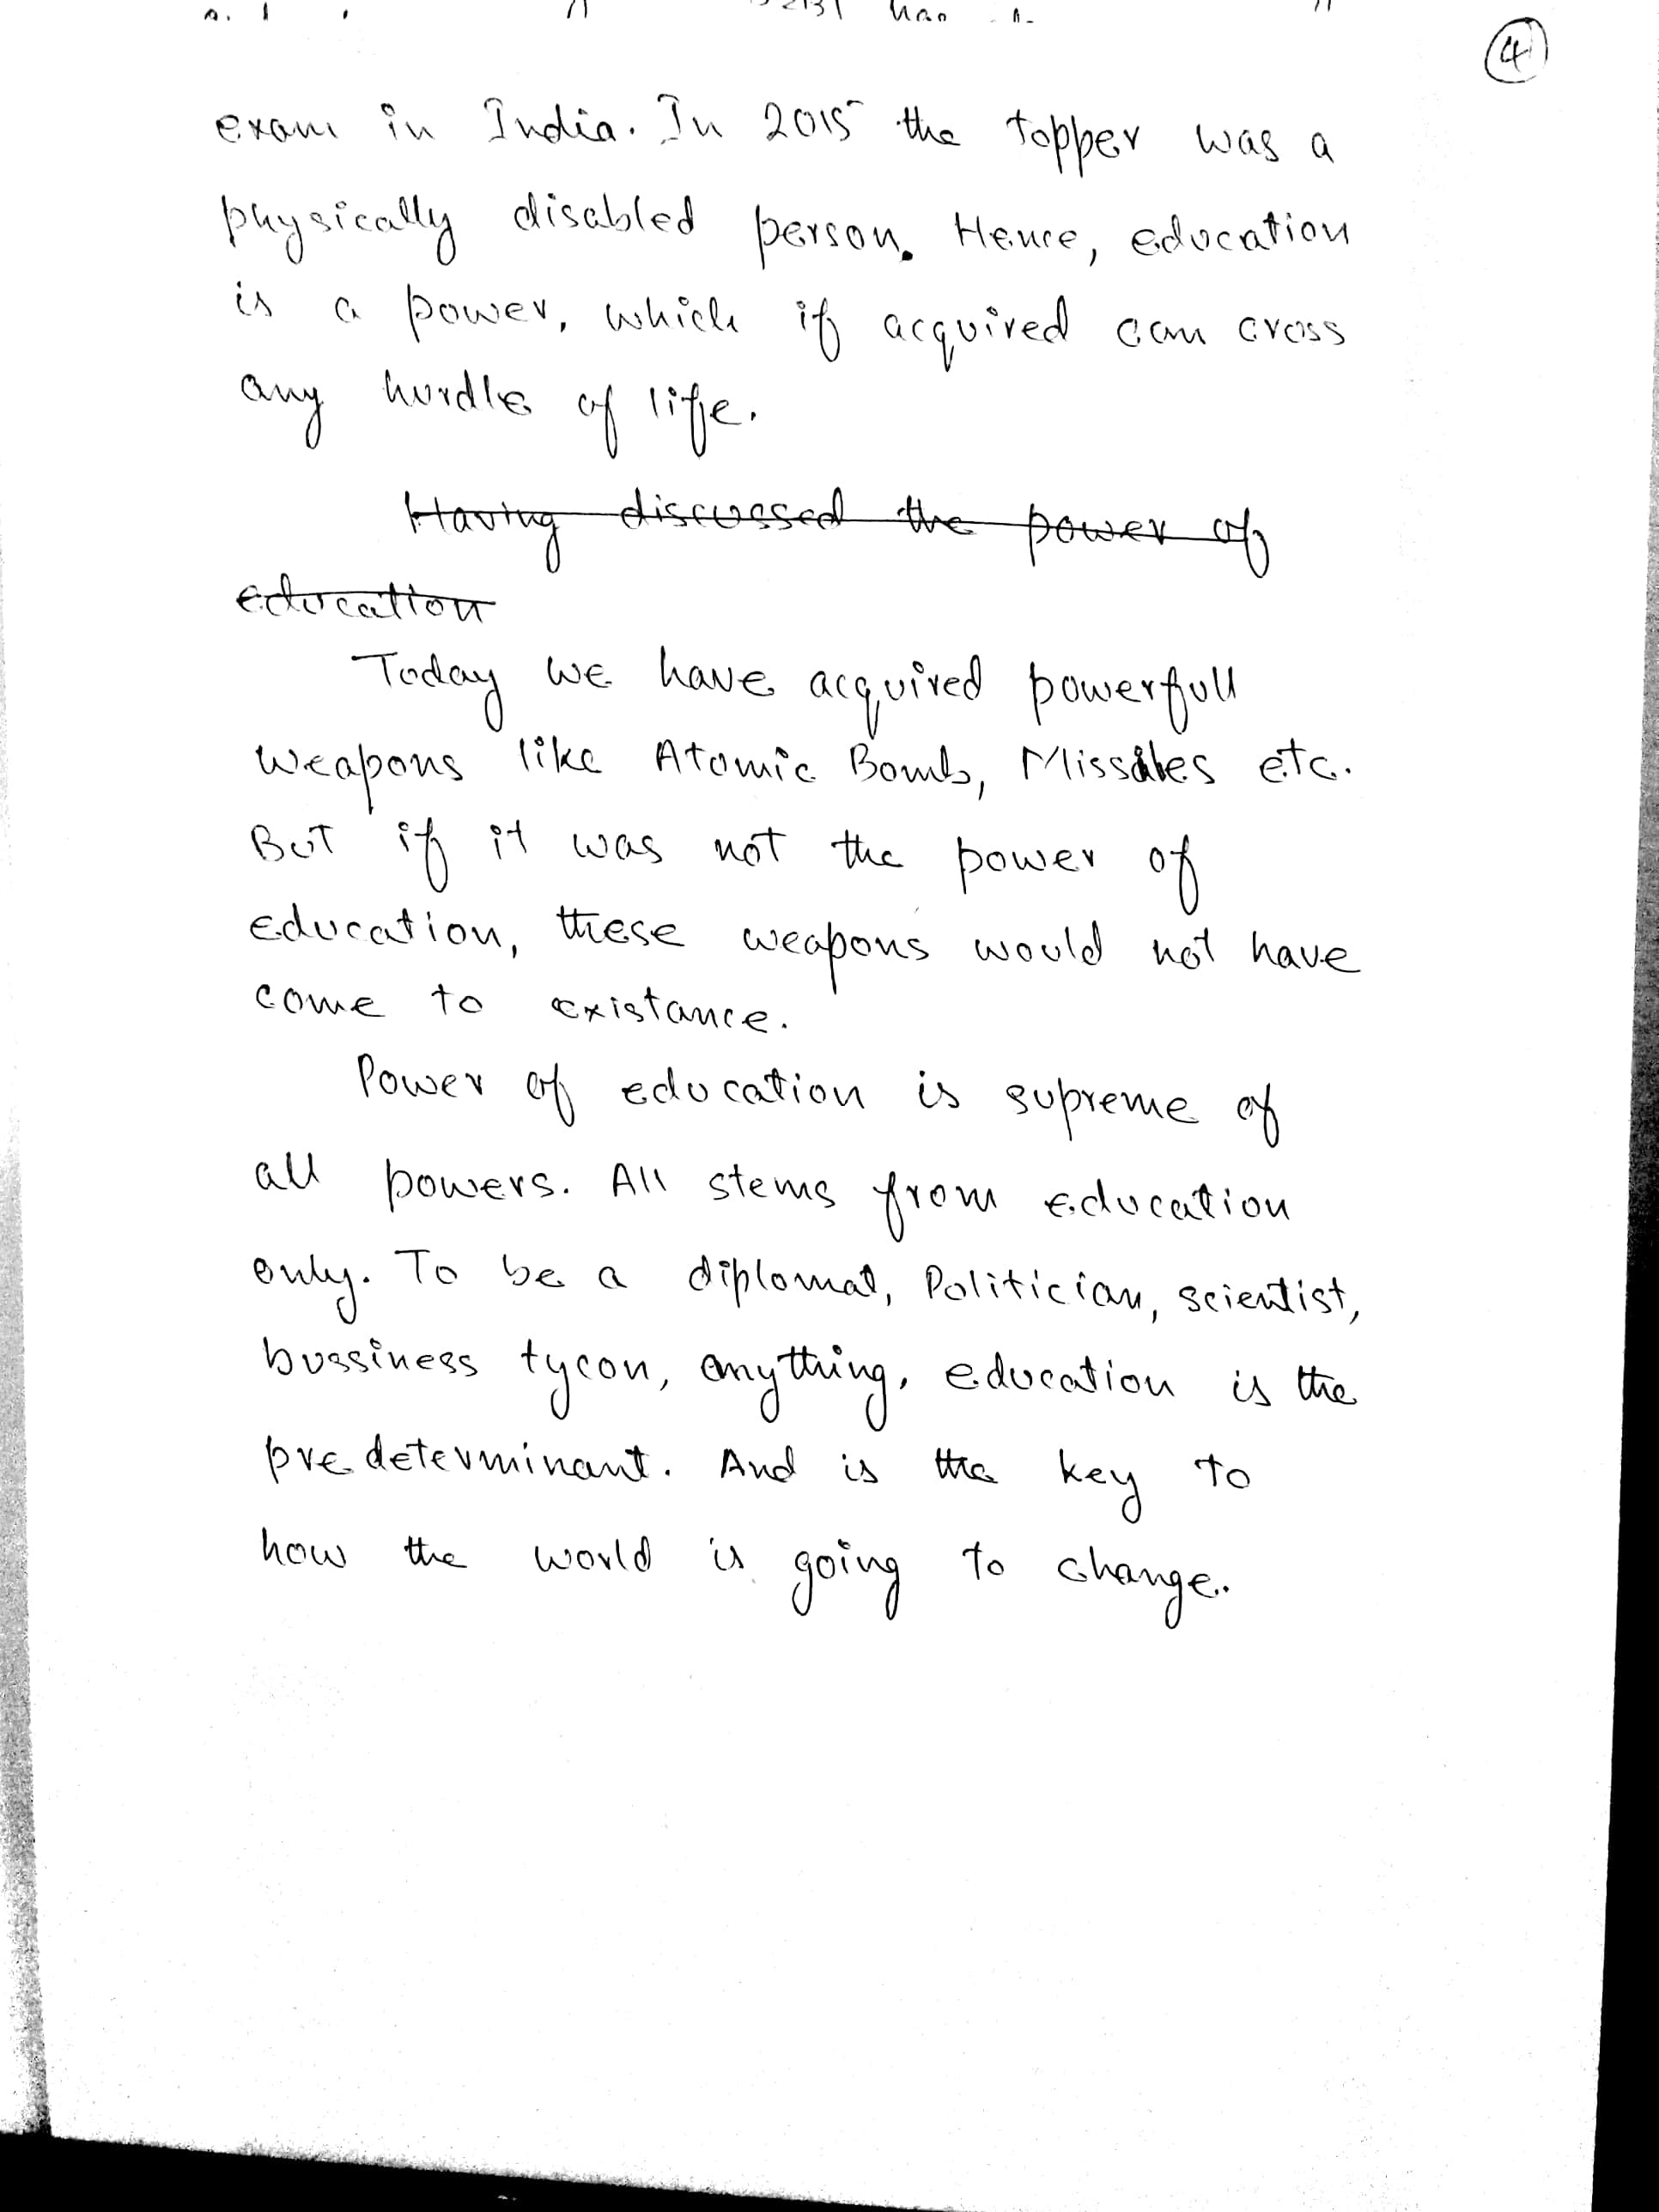 4
exam in India. In 2015 the topper was a
physically disabled person. Hence, education
is a power, which if acquired can cross
any hurdle of life.
Having discussed the power of
education
Today we have acquired powerfull
weapons like Atomic Bomb, Missiles etc.
But if it was not the power of
education, these weapons would not have
come to existance.
Power of education is supreme of
all powers. All stems from education
only. To be a diplomat, Politician, scientist,
bussiness tycon, anything, education is the
predeterminant. And is the key to
how the world is going to change.